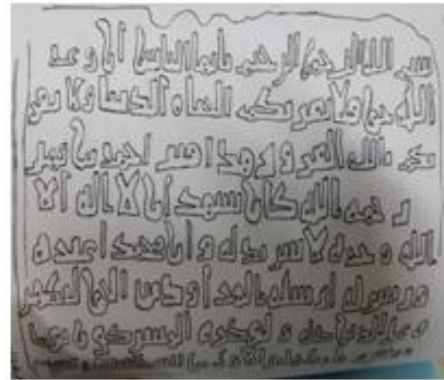 بسم الله الرحمن الرحيم يأيها الناس إن وعد
الله حق فلا تغرنكم الحياه الدنيا ولا يغر
نكم بالله الغرور هذا قبر أحمد بن
رحمه الله كان يشهد أن لا إله إلا
الله وحده لا شريك له وأن محمد عبده
ورسوله أرسله بالهدى ودين الحق ليظهره
على الدين كله ولو كره المشركون